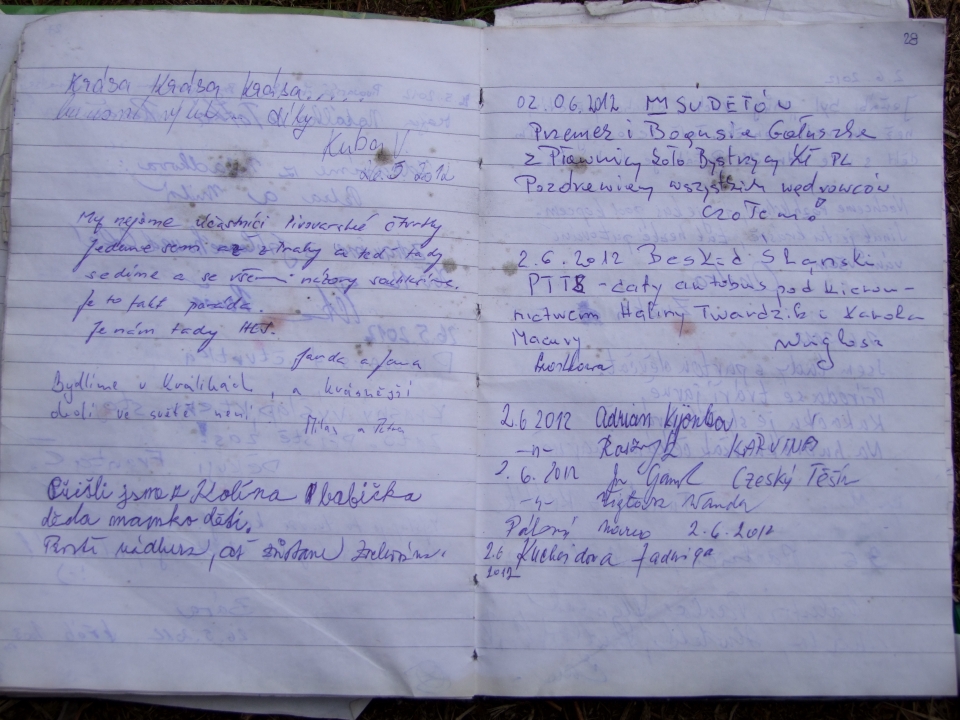 Krása Krása Krása....
díky
Kuba V.
2012
My nejsme účastníci Pivovarské čtvrtky
jedeme sem z Prahy a teď tady
sedíme a se všemi názory souhlasíme.
Je to fakt paráda.
Je nám tady HEJ.
Jarda a Jana
Bydlíme v Králíkách, a krásnější
okolí ve světě není.
Milan a Petra
Přišli jsme z Kolína babička
děda mamka děti.
Prostě nádhera, ať zůstane zachována.
28
02.06.2012 SUDETÓW
Przemek i Bogusia Gałuszka
z Pławnicy koło Bystrzycy Kł PL
Pozdrawiamy wszystkich wędrowców
CZOŁEM
2.6.2012 Beskid Śląski
PTTS - cały autobus pod kierow-
nictwem Haliny Twardzik i Karola
Macury
2.6 2012 Adrián Kyjonka
-"- KARVINA
2.6.2012 Czeský Těšín
-"- Wanda
2.6.2012
2.6 Jadwiga
2012